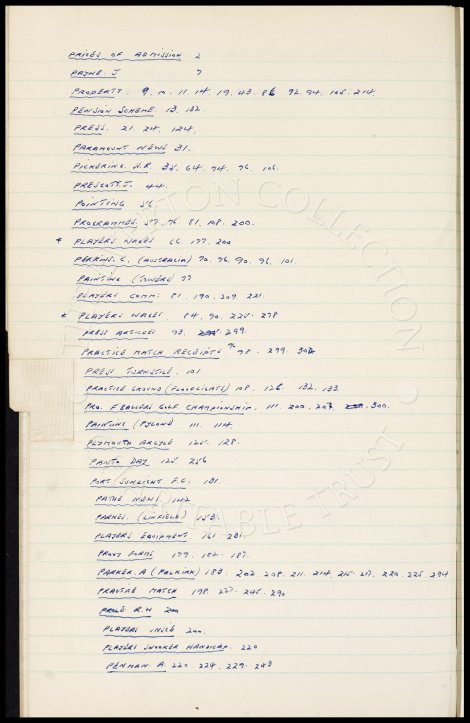 PRICES OF ADMISSION 2
PAYNE. J 7
PROPERTY. 9. 10. 11. 14. 19. 43. 86 92. 94. 105. 214
PENSION SCHEME 13. 132.
PRESS. 21. 24. 124.
PARAMOUNT NEWS 31.
PICKERING. J.R 35. 64. 74. 76. 106.
PRESCOTT. J. 44.
POINTING 56.
PROGRAMMES. 57. 76. 81. 108. 200.
* PLAYERS WAGES 66. 177. 200
PERKINS. C. (AUSTRALIA) 70. 76. 90. 96. 101.
PAINTING (TOWERS) 77
PLAYERS COMM: 81. 190. 209. 221.
* PLAYERS WAGES. 84. 90. 225. 278
PRESS ARTICLES 93. 299.
PRACTICE MATCH RECEIPTS 98. 299. 302
PRESS TURNSTILE. 101
PRACTICE GROUND (FLOODLIGHTS) 108. 126. 132. 133.
PRO. F'BALLERS GOLF CHAMPIONSHIP. 111. 200. 300.
PAINTING (PYLONS) 111. 114
PLYMOUTH ARGYLE 125. 128.
PANTO DAY 125. 256
PORT SUNLIGHT F.C. 131.
PATHE NEWS. 142
PARKES. (LINFIELD) 153.
PLAYERS EQUIPMENT. 161. 281.
PROXY FORMS 179. 182. 187.
PARKER. A (FALKIRK) 183. 202. 208. 211. 214. 215. 217. 220. 225. 294
PRACTICE MATCH 198. 245. 290
PROLE R.W 200
PLAYERS INSCE 200.
PLAYERS SNOOKER HANDICAP. 220
PENMAN. A. 220. 224. 229. 243